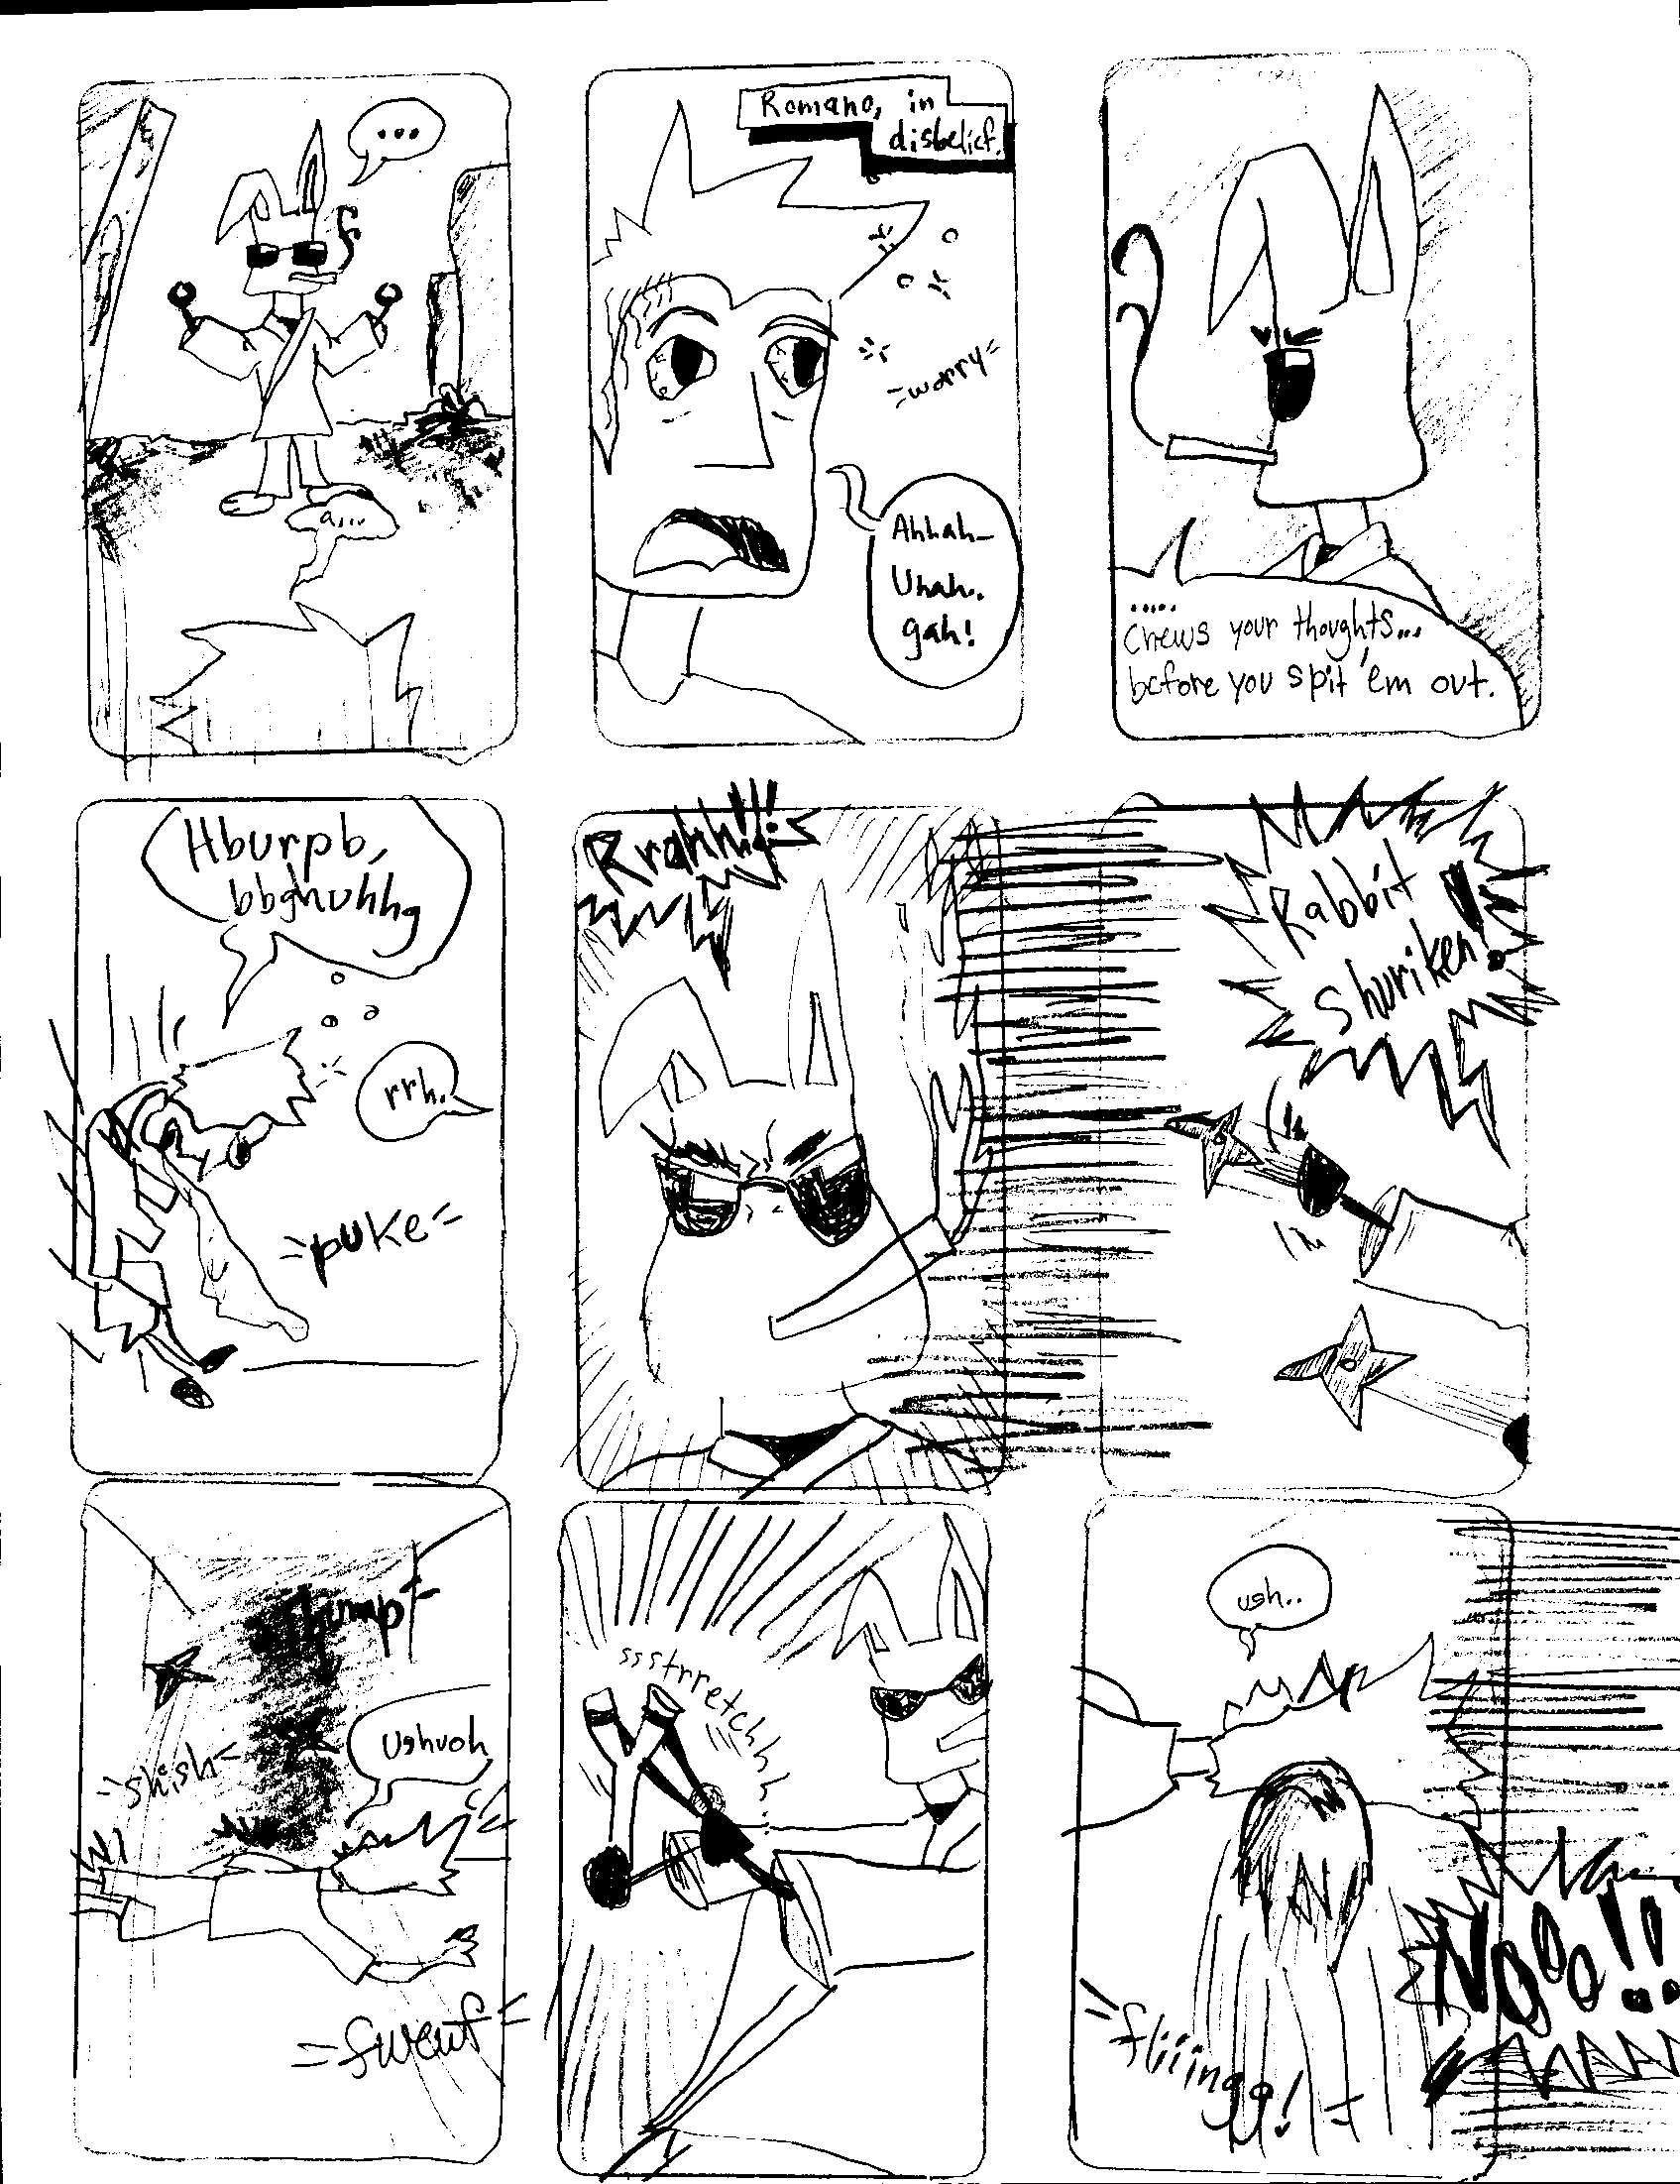 ...
a...
Romano, in
disbelief.
=worry=
Ahhah-
Uhah..
gah!
.....
Chews your thoughts...
before you spit 'em out.
Hburpb,
bbghuhhg
rrh.
=puke=
Rrahhg!!!
Rabbit
Shuriken!!
Thump
=shish=
Ughuoh,
=fweuf=
ssstrretchhh
ugh..
=fliiingg!=
NoOo!!